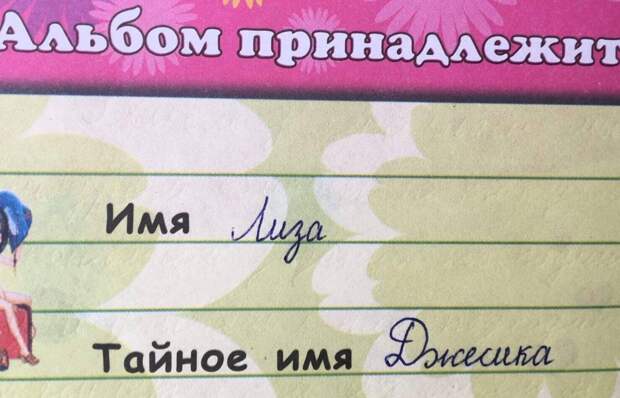 Альбом принадлежит
Имя Лиза
Тайное имя Джесика